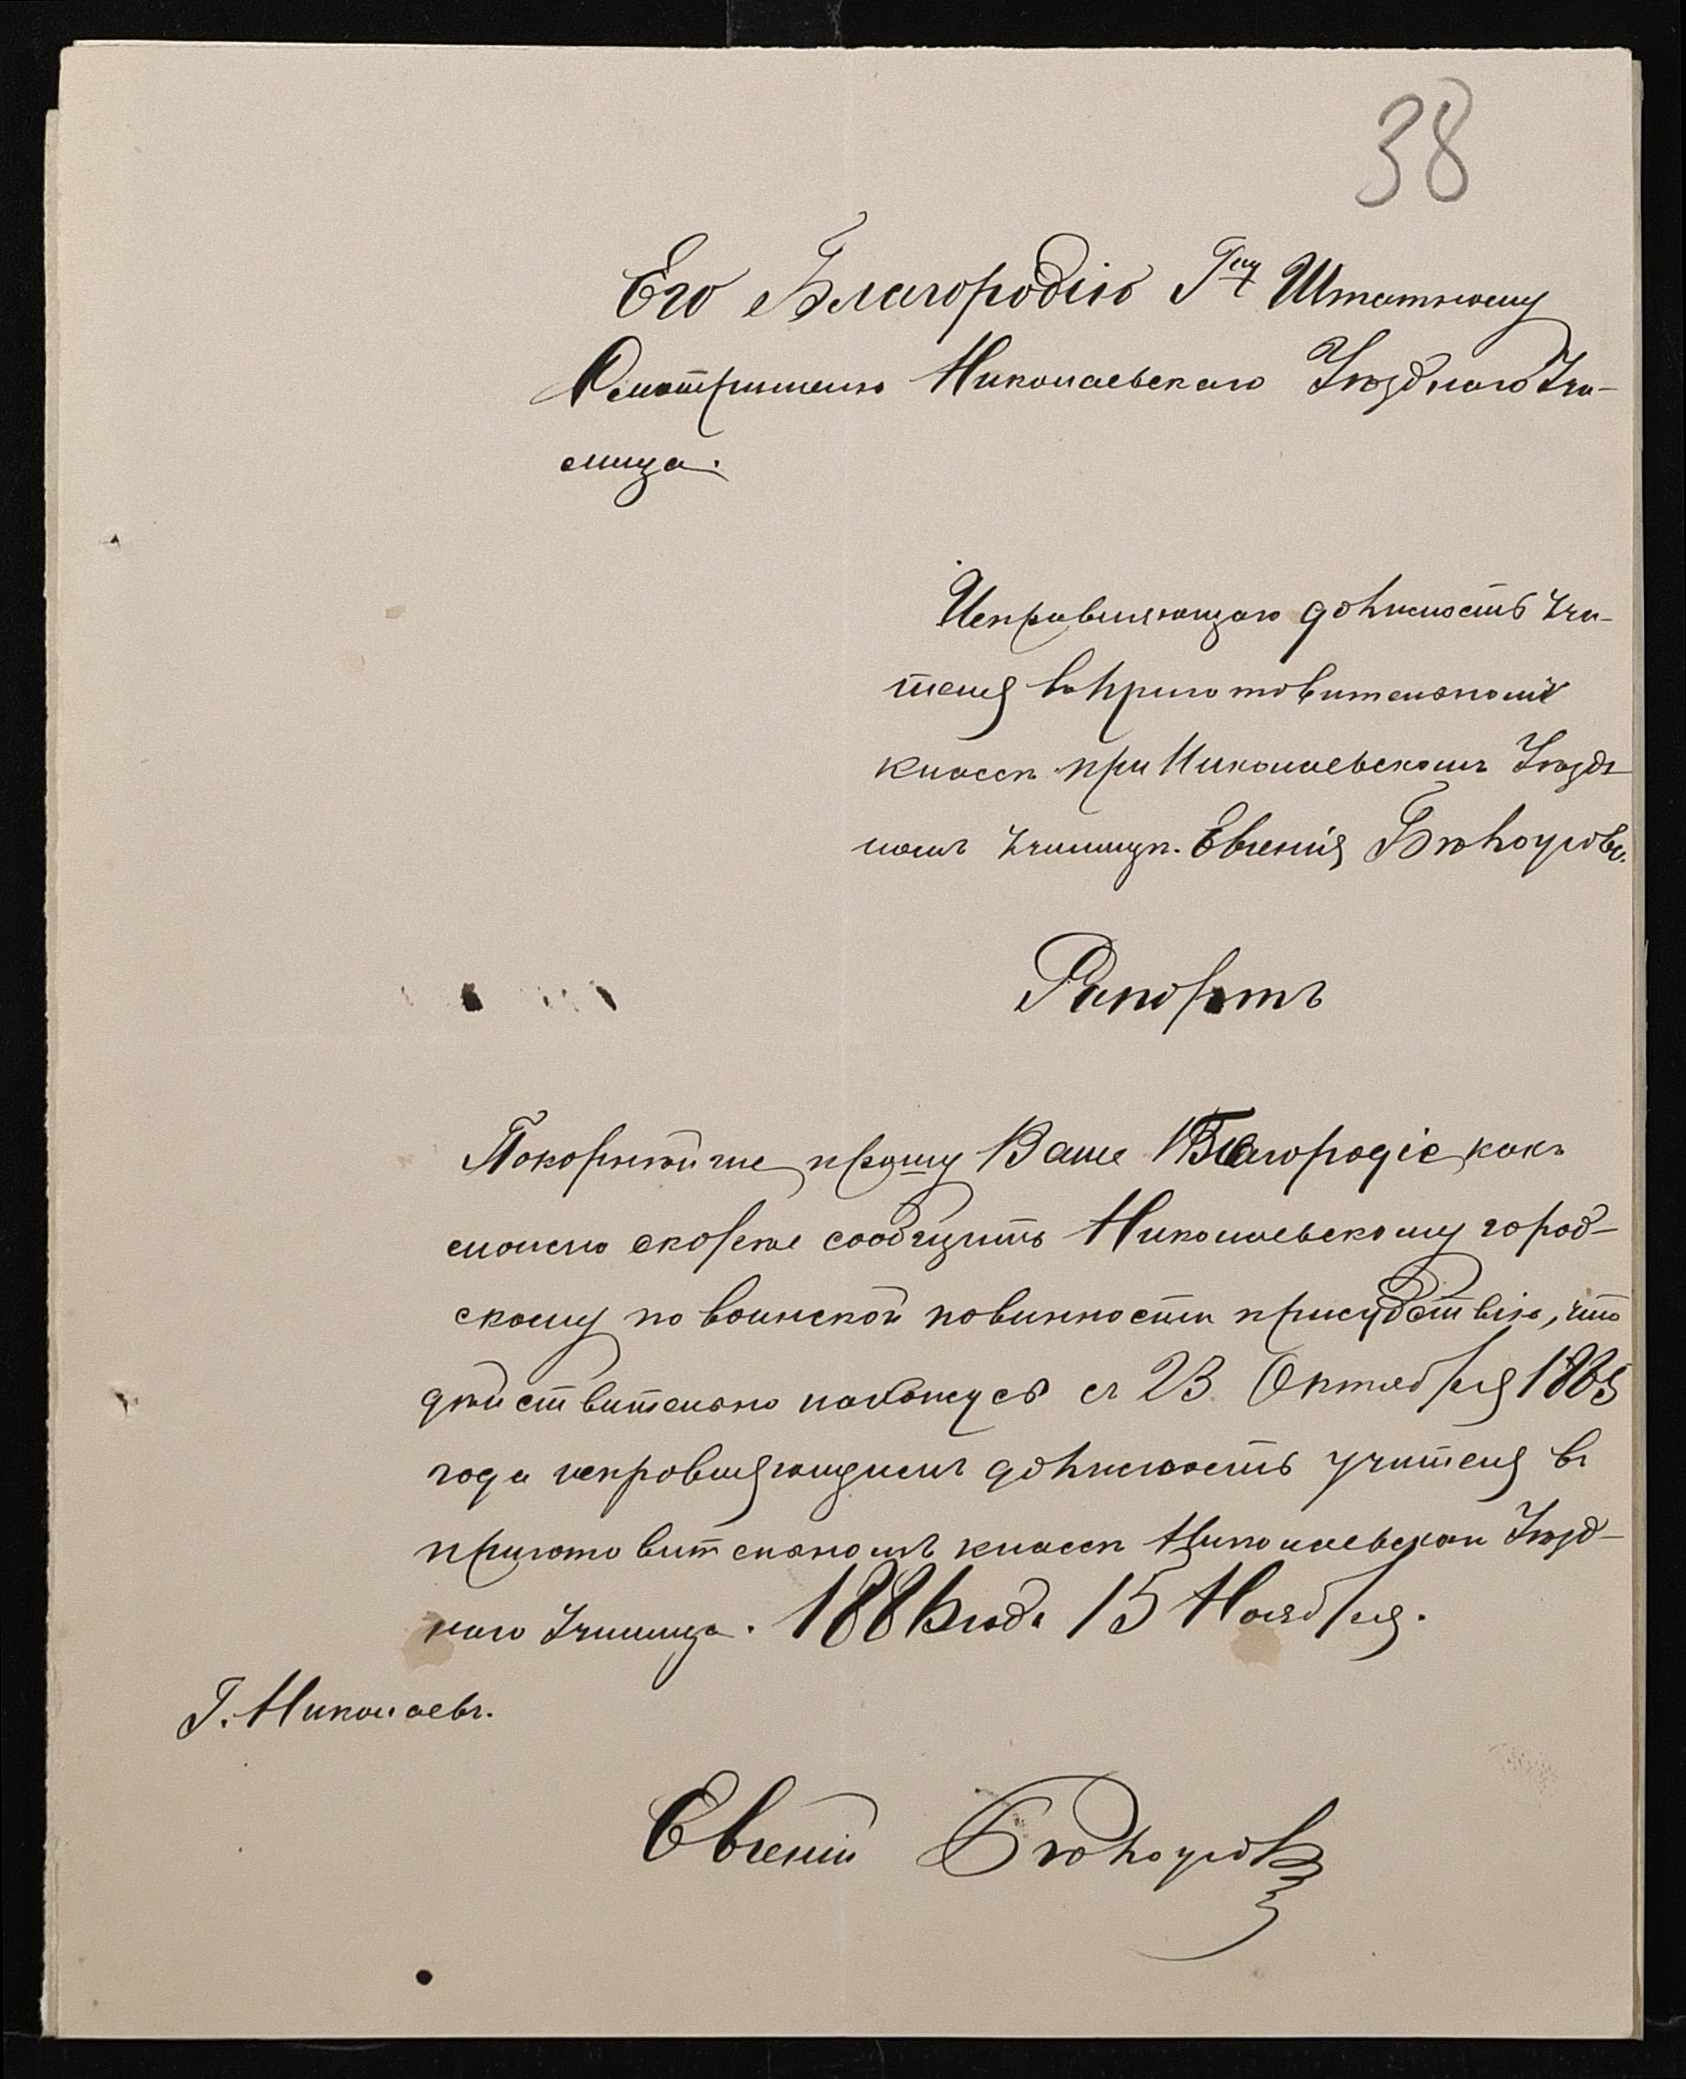 38
Его Благородію Г<sup>ну</sup> Штатному
Смотрителю Николаевскаго Уѣзднаго Учи-
лища.
Исправляющаго должность Учи-
теля въ приготовительномъ
классѣ при Николаевскомъ Уѣзд-
номъ Училищѣ. Евгенія
Рапортъ
Покорнѣйше прошу Ваше Благородіе какъ
можно скорѣе сообщить Николаевскому город-
скому по воинской повинности присудствію, что
дѣйствительно нахожусь съ 23 Октября
года исправляющимъ должность учителя въ
приготовительномъ классѣ Николаевскаго Уѣзд-
наго Училища. года 15 Ноября.
Г. Николаевъ.
Евгеній